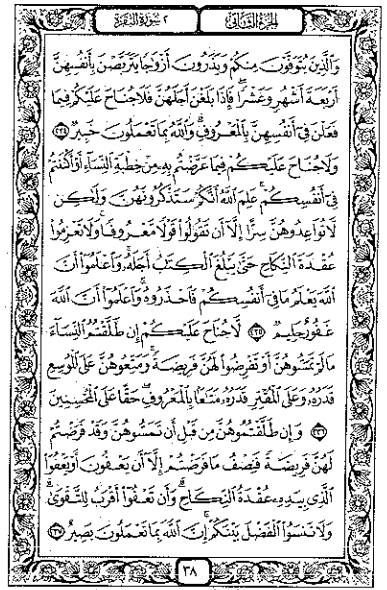 الجزء الثاني ٢ سورة البقرة
وَالَّذِينَ يُتَوَفَّوْنَ مِنكُمْ وَيَذَرُونَ أَزْوَاجًا يَتَرَبَّصْنَ بِأَنفُسِهِنَّ
أَرْبَعَةَ أَشْهُرٍ وَعَشْرًا ۖ فَإِذَا بَلَغْنَ أَجَلَهُنَّ فَلَا جُنَاحَ عَلَيْكُمْ فِيمَا
فَعَلْنَ فِي أَنفُسِهِنَّ بِالْمَعْرُوفِ ۗ وَاللَّهُ بِمَا تَعْمَلُونَ خَبِيرٌ ٢٣٤
وَلَا جُنَاحَ عَلَيْكُمْ فِيمَا عَرَّضْتُم بِهِ مِنْ خِطْبَةِ النِّسَاءِ أَوْ أَكْنَنتُمْ
فِي أَنفُسِكُمْ ۚ عَلِمَ اللَّهُ أَنَّكُمْ سَتَذْكُرُونَهُنَّ وَلَٰكِن
لَّا تُوَاعِدُوهُنَّ سِرًّا إِلَّا أَن تَقُولُوا قَوْلًا مَّعْرُوفًا ۚ وَلَا تَعْزِمُوا
عُقْدَةَ النِّكَاحِ حَتَّىٰ يَبْلُغَ الْكِتَابُ أَجَلَهُ ۚ وَاعْلَمُوا أَنَّ
اللَّهَ يَعْلَمُ مَا فِي أَنفُسِكُمْ فَاحْذَرُوهُ ۚ وَاعْلَمُوا أَنَّ اللَّهَ
غَفُورٌ حَلِيمٌ ٢٣٥ لَّا جُنَاحَ عَلَيْكُمْ إِن طَلَّقْتُمُ النِّسَاءَ
مَا لَمْ تَمَسُّوهُنَّ أَوْ تَفْرِضُوا لَهُنَّ فَرِيضَةً ۚ وَمَتِّعُوهُنَّ عَلَى الْمُوسِعِ
قَدَرُهُ وَعَلَى الْمُقْتِرِ قَدَرُهُ مَتَاعًا بِالْمَعْرُوفِ ۖ حَقًّا عَلَى الْمُحْسِنِينَ
٢٣٦ وَإِن طَلَّقْتُمُوهُنَّ مِن قَبْلِ أَن تَمَسُّوهُنَّ وَقَدْ فَرَضْتُمْ
لَهُنَّ فَرِيضَةً فَنِصْفُ مَا فَرَضْتُمْ إِلَّا أَن يَعْفُونَ أَوْ يَعْفُوَا
الَّذِي بِيَدِهِ عُقْدَةُ النِّكَاحِ ۚ وَأَن تَعْفُوا أَقْرَبُ لِلتَّقْوَىٰ ۚ
وَلَا تَنسَوُا الْفَضْلَ بَيْنَكُمْ ۚ إِنَّ اللَّهَ بِمَا تَعْمَلُونَ بَصِيرٌ ٢٣٧
٣٨